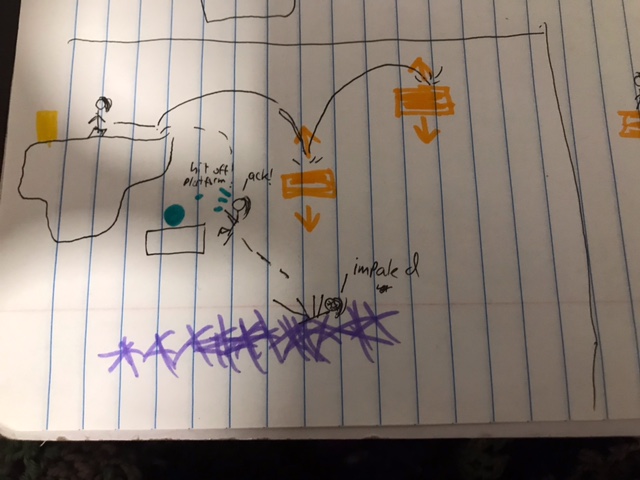 hit off
platform!
ack!
impaled